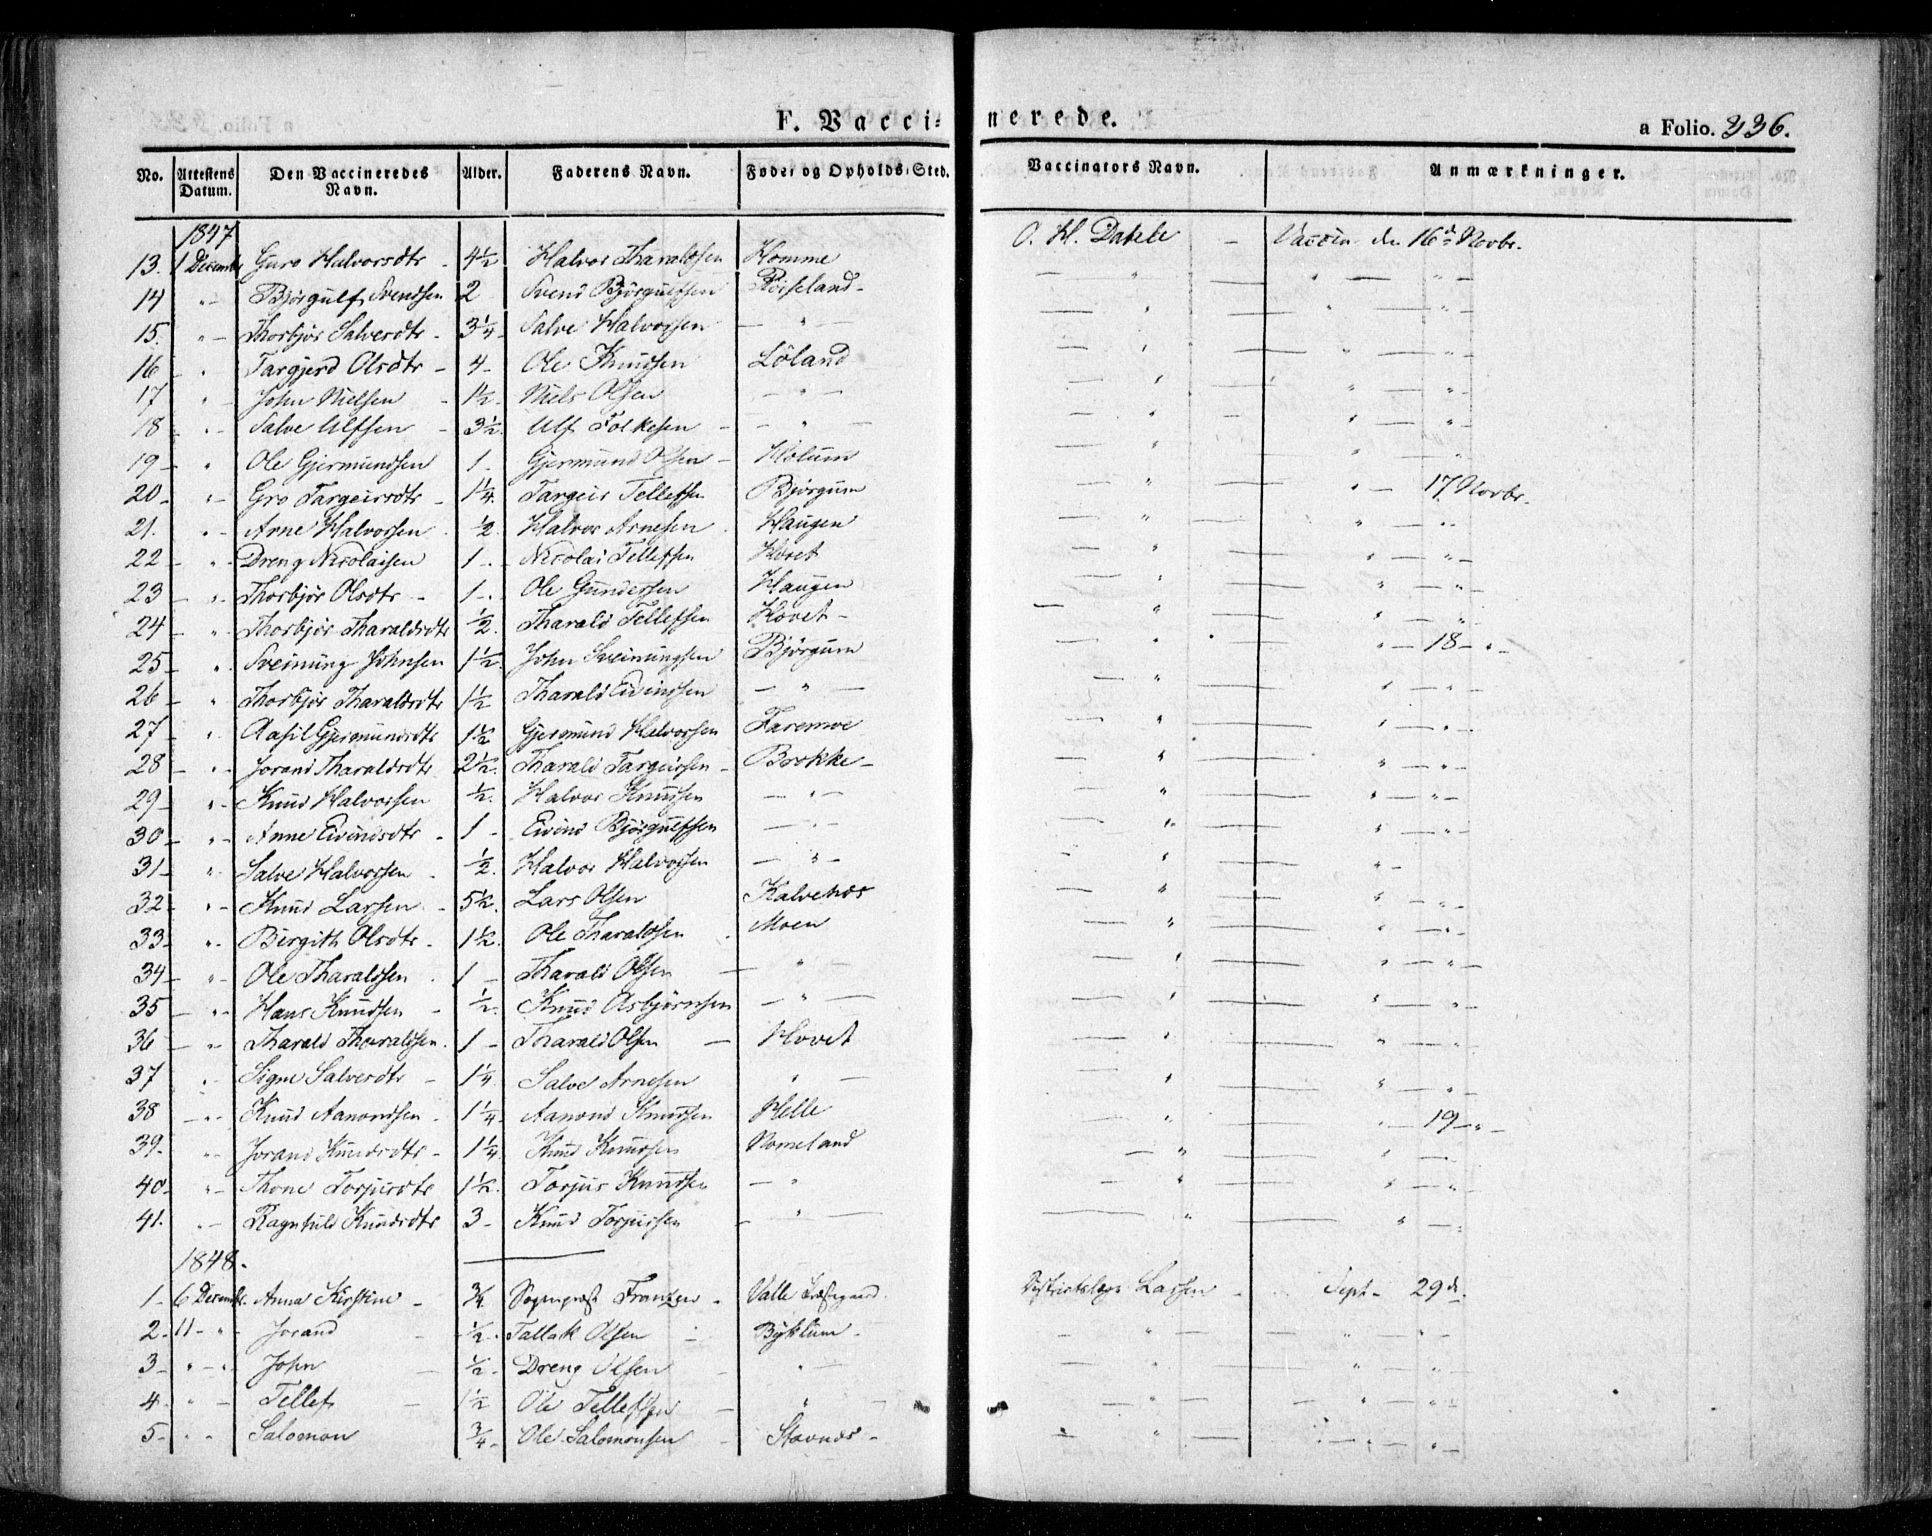 F. Vaccinerede. a Folio. 336.
No. Attestens Datum. Den Vaccineredes Navn. Alder. Faderens Navn. Føde- og Opholds-Sted. Vaccinators Navn. Anmærkninger.
1847
13. 1 December Guro Halvorsdtr - 4½ Halvor Tharaldsen Homme O. H. Dahle - Vaccin. den 16d Novbr.
14 " - Bjørgulf Svendsen 2 Svend Bjørgulfsen Røiseland - — " — " — " —
15. " - Thorbjør Salvesdtr - 3¼ Salve Halvorsen — " — — " — " — " —
16 - " Targjerd Olsdtr - 4 - Ole Knudsen Löland — " — " — " —
17 " - John Nielsen - 1½ - Niels Olsen — " — — " — " — " —
18 - " - Salve Ulfsen - 3½ Ulf Folkesen - — " — — " — " — " —
19 - " Ole Gjermundsen 1 - Gjermund Olsen - Holum — " — " — " —
20 - " - Gro Targeirsdtr - 1¼. Targeir Tellefsen Bjørgum — " — " — 17 Novbr.
21. " - Arne Halvorsen - ½ Halvor Arnesen Haugen — " — " — " —
22 - " - Dreng Nicolaisen 1 - Nicolai Tellefsen Hovet — " — " — " —
23 - " - Thorbjør Olsdtr - 1 - Ole Gundersen Haugen — " — " — " —
24 - " Thorbjør Tharaldsdtr ½ Tharald Tellefsen Hovet - — " — " — " —
25 - " Sveinung Johnsen 1½ - John Sveinungsen Bjørgum — " — " — 18 - " -
26 - " Thorbjør Tharaldsdtr 1½ Tharald Eivindsen — " — — " — " — " —
27 - " Aasil Gjermundsdtr 1½ Gjermund Halvorsen Faremoe — " — " — " —
28 - " - Jorand Tharaldsdtr 2½. Tharald Targeirsen - Brokke - — " — " — " —
29 - " - Knud Halvorsen ½. Halvor Knudsen — " — — " — " — " —
30 - " - Anne Eivindsdtr - 1 - Eivind Bjørgulfsen — " — — " — " — " —
31 - " Salve Halvorsen - ½. Halvor Halvorsen — " — — " — " —
32 - " - Knud Larsen - 5½. Lars Olsen Kalvenæs — " — " — " —
33 - " - Birgith Olsdtr - 1½. Ole Tharaldsen - Moen — " — " — " —
34 - " - Ole Tharaldsen - 1 - Tharald Olsen — " — — " — " — " —
35 - " - Hans Knudsen - ½. Knud Asbjørnsen — " — — " — " — " —
36 - " - Tharald Tharaldsen. 1 - Tharald Olsen - Hovet — " — " — " —
37 " - Signe Salvesdtr - 1¼ Salve Arnesen " — — " — " — " —
38 - " - Knud Aanondsen - 1¼. Aanond Knudsen Helle — " — " — 19 - " -
39. " - Jorand Knudsdtr - 1¼. Knud Knudsen Romeland — " — " — " —
40 - " - Thone Torjusdtr 1½. Torjus Knudsen — " — " — " — " —
41. " - Ragnhild Knudsdtr 3 - Knud Torjussen - " — — " — " — " —
1848.
1 - 6 Decembr. Anna Kirstine - ¾. Sogneprest Franzen - Valle Præstegaard. Districtslæge Lassen - Sept - 29de.
2 - 11 - " - Jorand - ½ - Tallak Olsen - Byklum - — " — " — " —
3 - " - " - John - ½ - Dreng Olsen - " — — " — " — " —
4 - " - Tellef - 1½ Ole Tellefsen - " — — " — " — " —
5 - " - " Salomon ¾ - Ole Salomonsen - Stavnæs - — " — " — " —